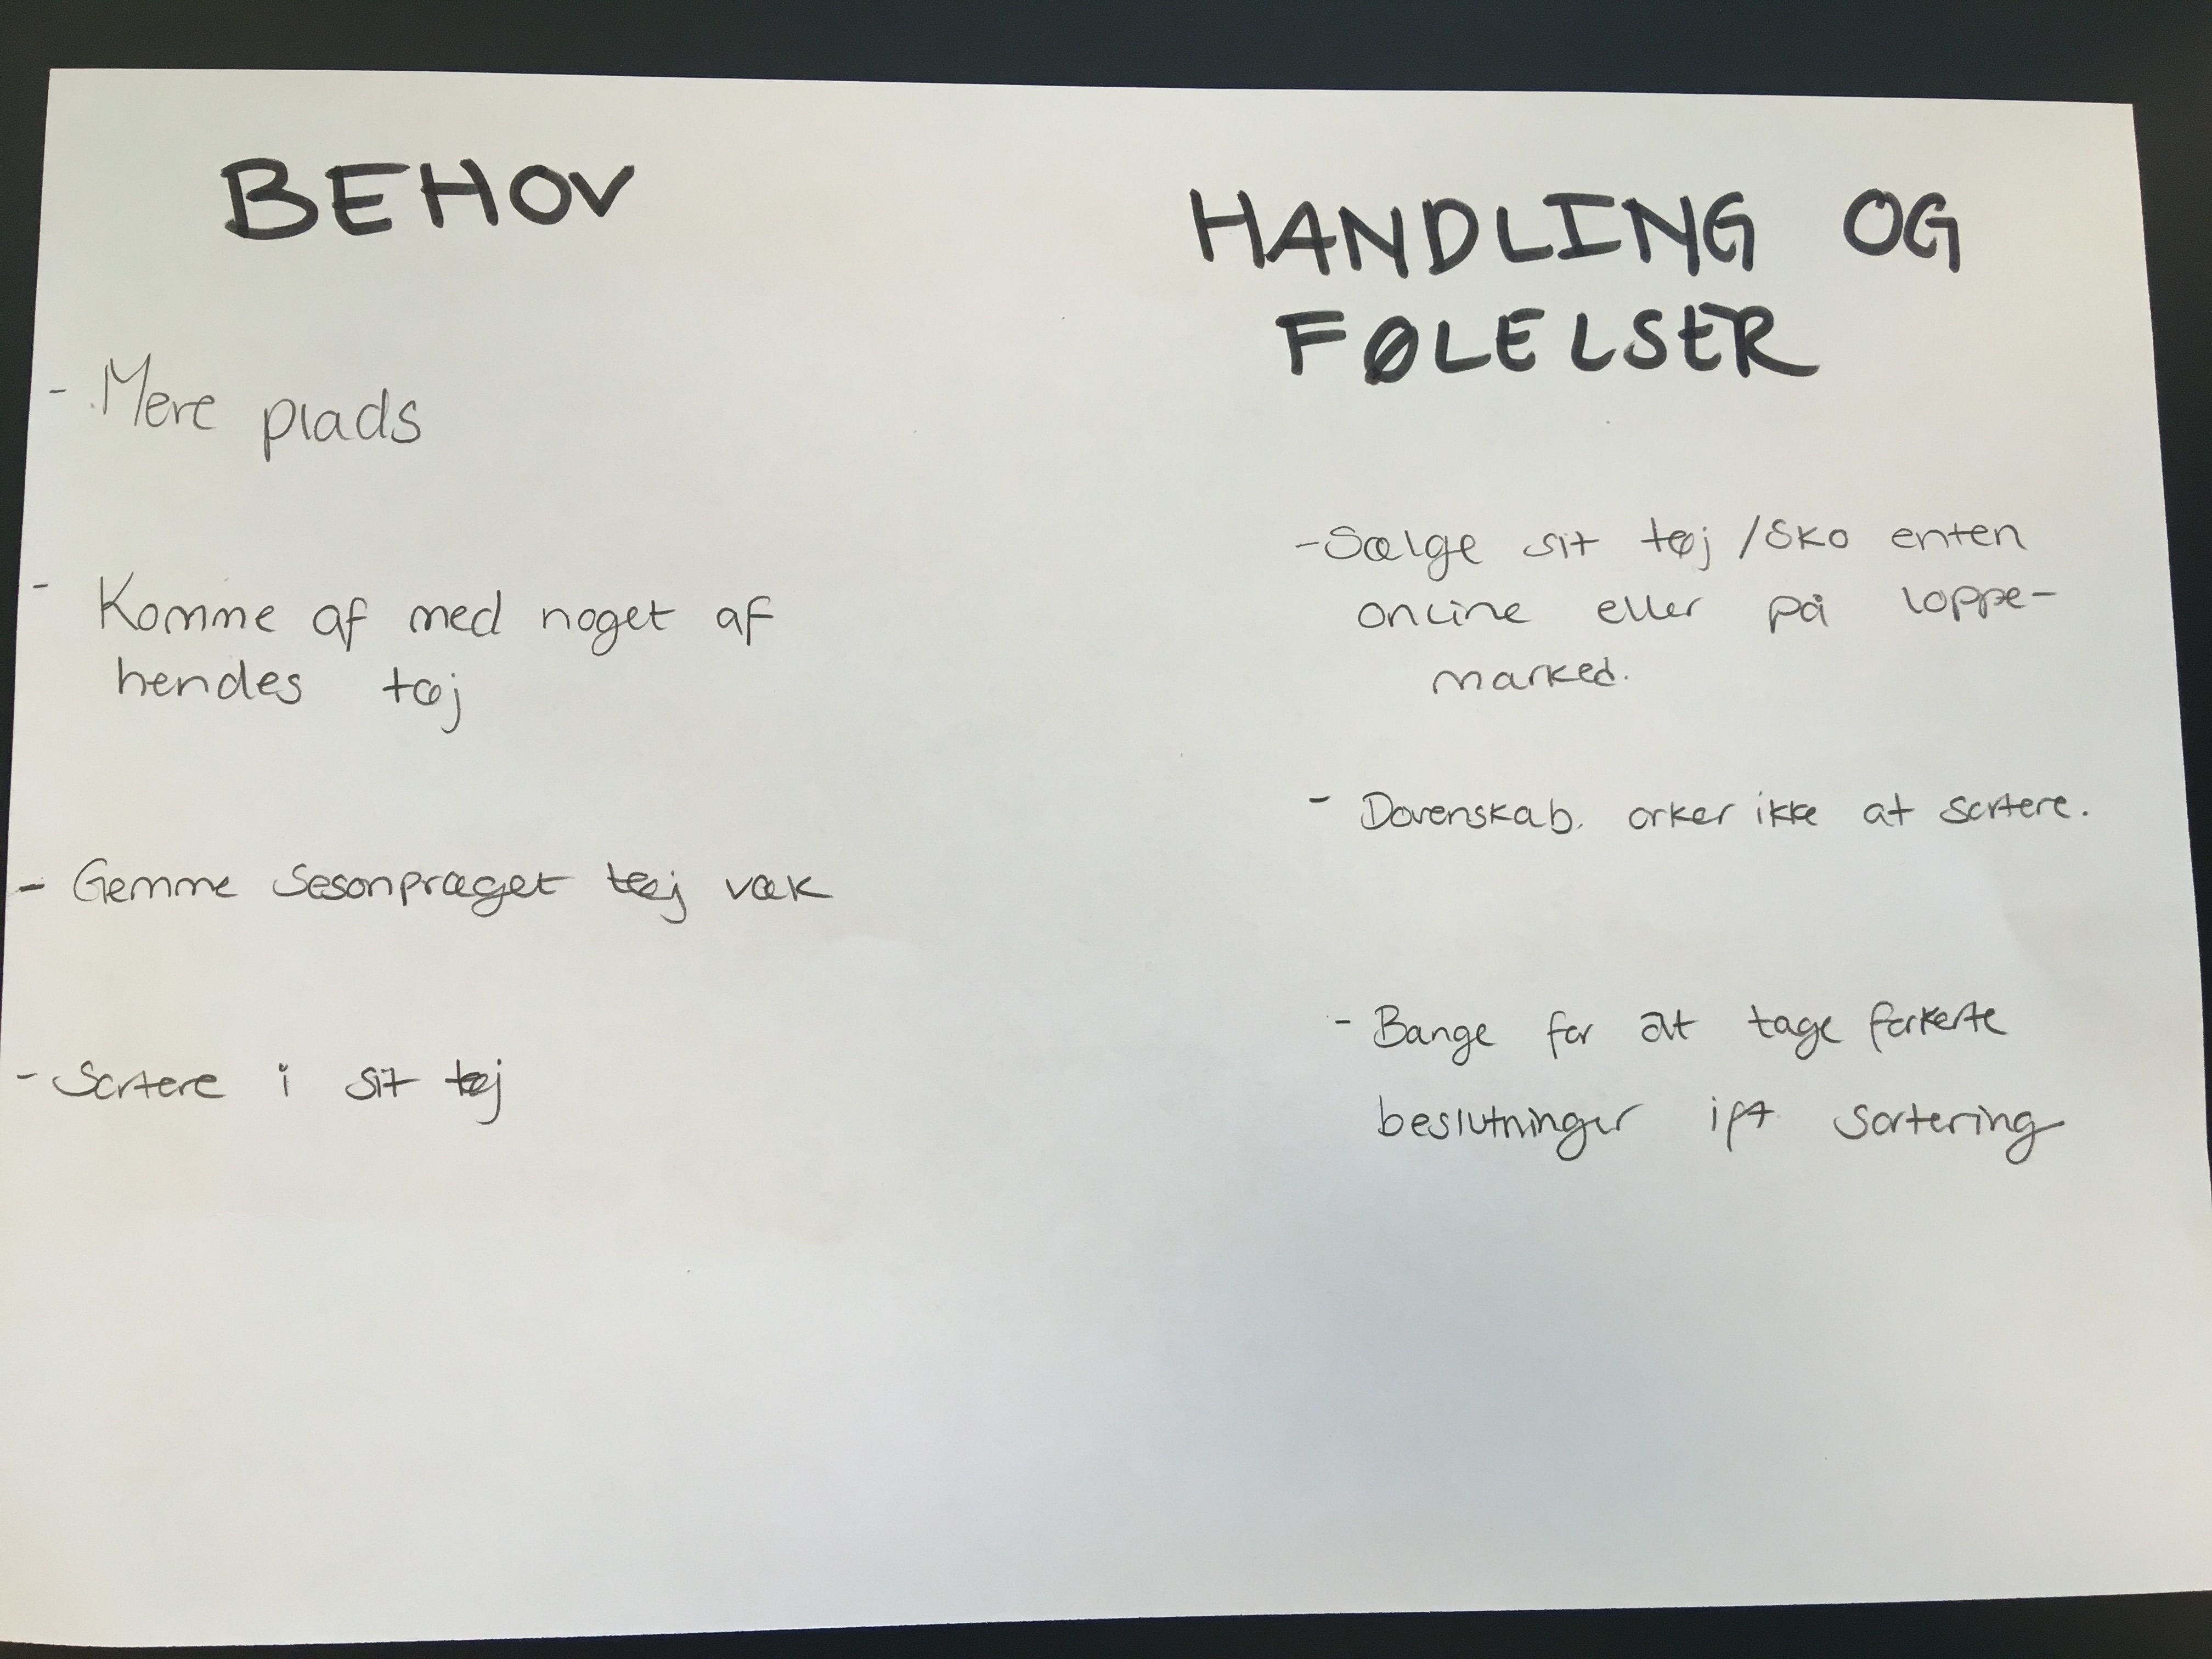 BEHOV
- Mere plads
- Komme af med noget af
hendes tøj
- Gemme sæsonpræget tøj væk
- Sortere i sit tøj
HANDLING OG
FØLELSER
- Sælge sit tøj/sko enten
online eller på loppe-
marked.
- Dovenskab, orker ikke at sortere.
- Bange for at tage forkerte
beslutninger ift. sortering